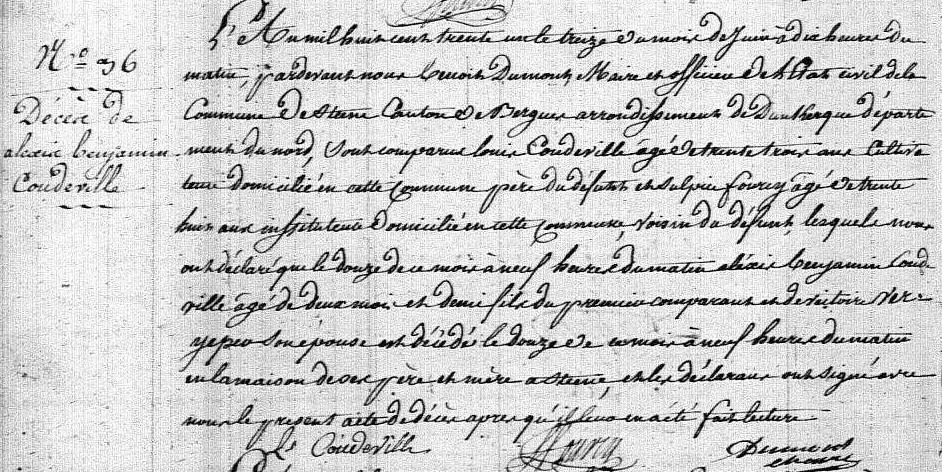 N.º 36
Décès de
alexis benjamin
Coudeville
L'An mil huit cent trente un le treize du mois de Juin à dix heures du
matin, pardevant nous benoit Dumont, Maire et officier de l'Etat civil de la
Commune de Steene Canton de Bergues arrondissement de Dunkerque départe
ment du nord, Sont comparus louis Coudeville âgé de trente trois ans Cultiva
teur domicilié en cette Commune père du défunt et Sulpice fourcy âgé de trente
huit ans instituteur domicilié en cette Commune, voisin du défunt, lesquels nous
ont déclaré que le douze de ce mois à neuf heures du matin aléxis benjamin Coud-
ville âgé de deux mois et demi fils du premier comparant et de victoire Ver=
yepeo Son épouse est décédé le douze de ce mois à neuf heures du matin
en la maison de ses père et mère a Steene, et les déclarans ont signé avec
nous le present acte de décès apres qu'il leur en a été fait lecture
Ls Coudeville Fourcy Dumont